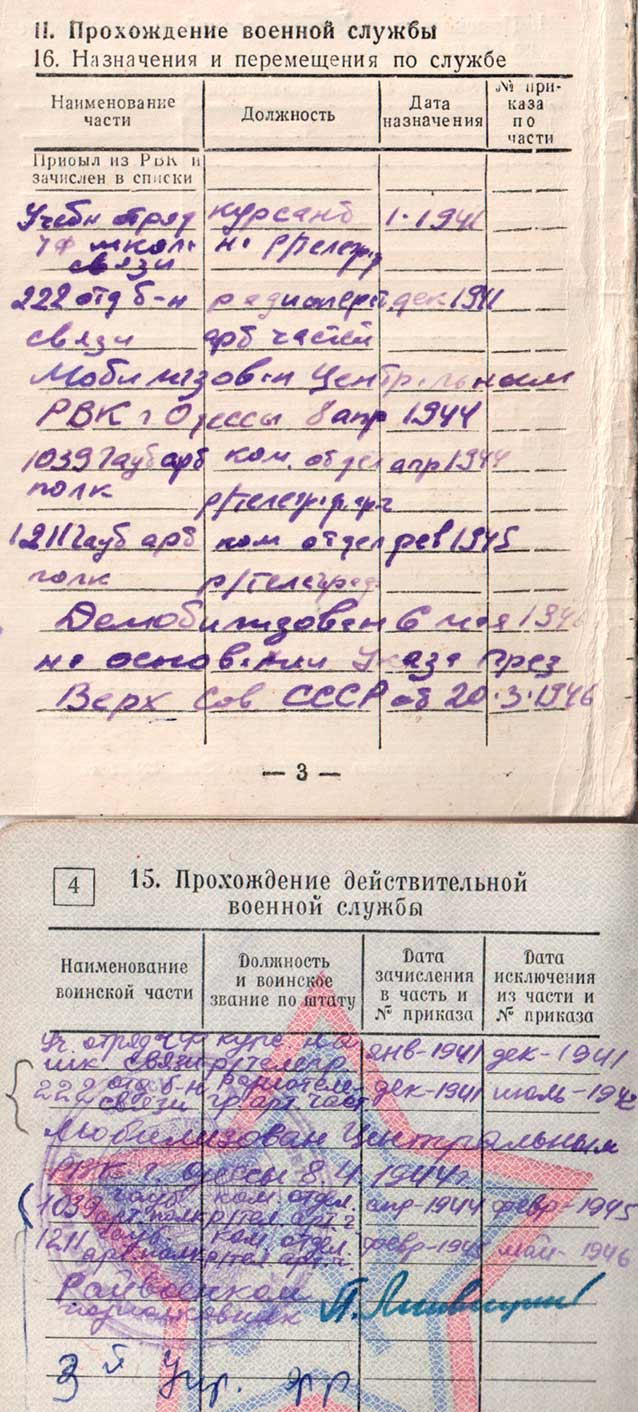 II. Прохождение военной службы
16. Назначения и перемещения по службе
Наименование части
Должность
Дата назначения
№ приказа по части
Прибыл из РВК и
зачислен в списки
Учебн отряд курсант 1.1941
ЧФ школ. на р/телегр
связи
222 отд б-н радиопер дек 1941
связи арт частей
Мобилизован Центральным
РВК г Одессы 8 апр 1944
1039 гауб арт ком. отдел апр 1944
полк р/телегр.
1211 гауб арт ком отдел фев 1945
полк р/телегр
Демобилизован 6 мая 1946
на основании Указа През
Верх Сов СССР от 20.3.1946
— 3 —
4
15. Прохождение действительной
военной службы
Наименование воинской части
Должность и воинское звание по штату
Дата зачисления в часть и № приказа
Дата исключения из части и № приказа
Уч. отряд ЧФ янв-1941 дек-1941
шк связи р/телегр
222 отд б-н дек-1941 июль-1942
связи арт. част
Мобилизован Центральным
РВК г. Одессы 8.4.1944г
1039 гауб. ком. отдел. апр-1944 февр-1945
арт. полк р/тел арт.
1211 гауб ком. отдел. февр-1945 май-1946
арт полк р/тел арт.
Райвоенком
3 й Укр. фр